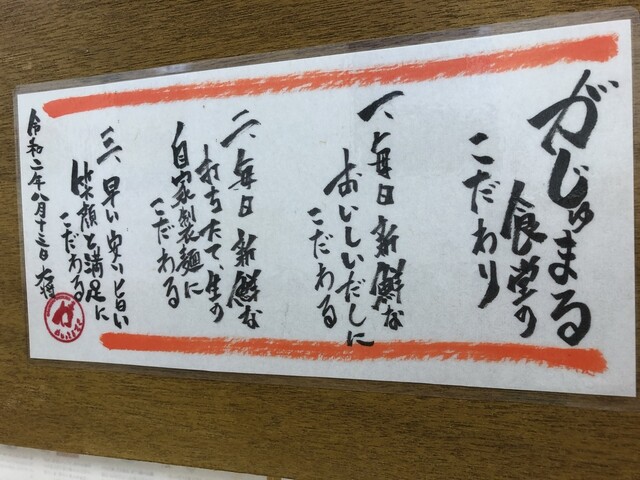 がじゅまる
食堂の
こだわり
一、毎日新鮮な
おいしいだしに
こだわる
二、毎日新鮮な
打ちたて生の
自家製麺に
こだわる
三、早い安い旨い
笑顔と満足に
こだわる
令和二年八月十三日